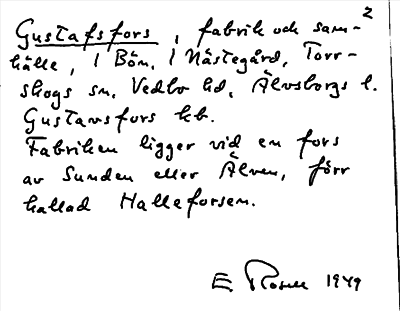 2
Gustafsfors, fabrik och sam-
hälle, 1 Bön, 1 Nästegård, Torr-
skogs sn, Vedbo hd, Älvsborgs l.
Gustavsfors kb.
Fabriken ligger vid en fors
av Sunden eller Älven, förr
kallad Halleforsen.
E. Rosell 1949